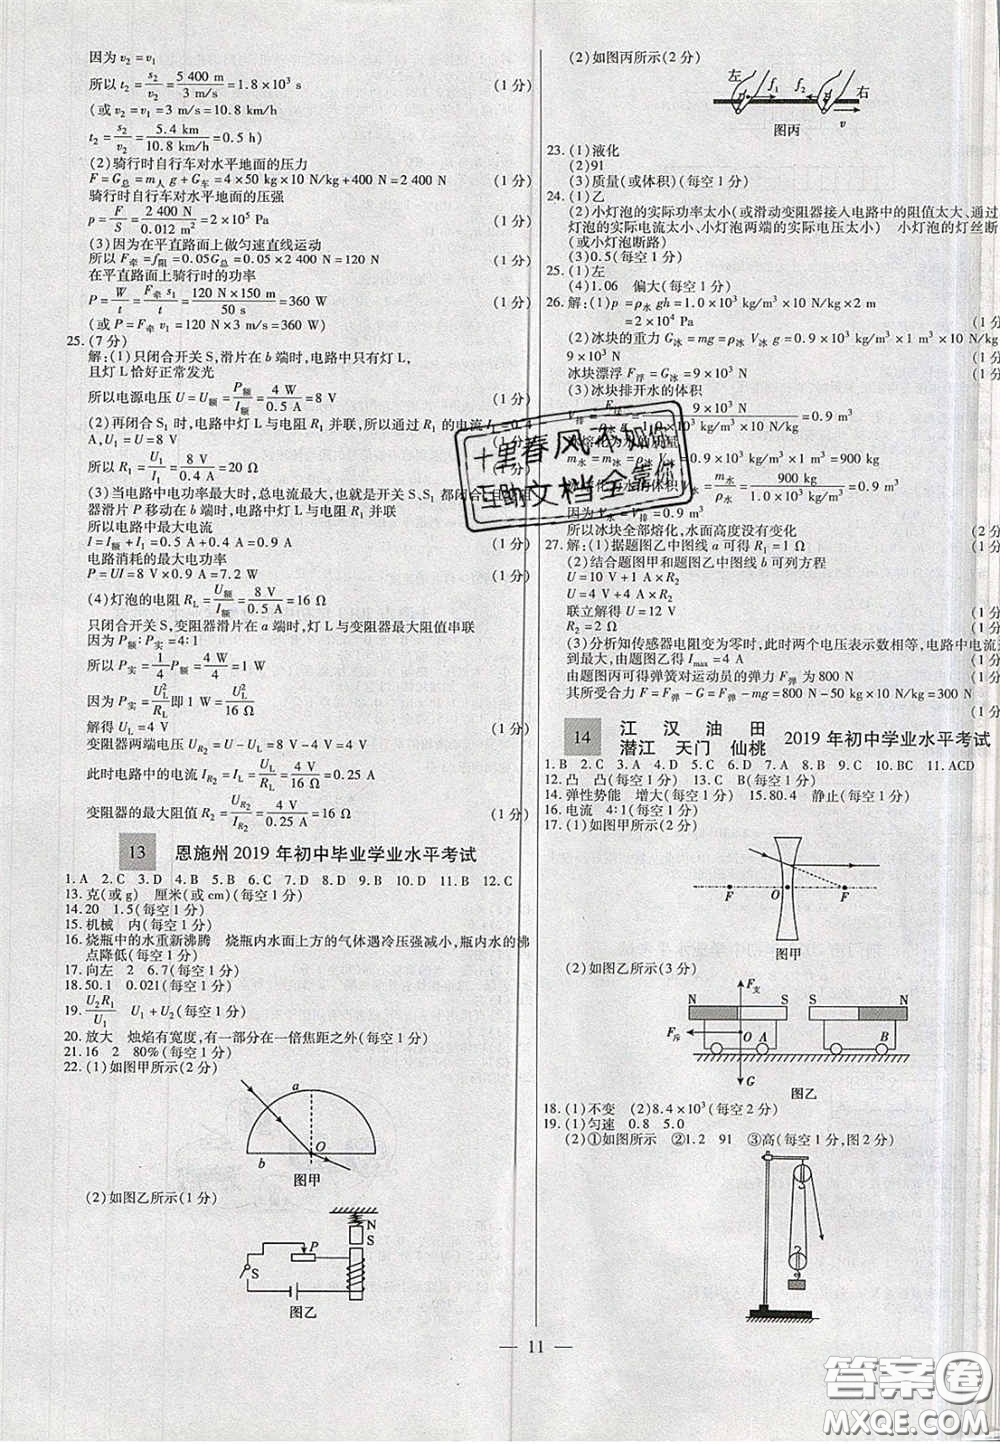 因为 v₂=v₁
所以 t₂=s₂/v₂=5 400 m/3 m/s=1.8×10³ s (1分)
(或 v₂=v₁=3 m/s=10.8 km/h
t₂=s₂/v₂=5.4 km/10.8 km/h=0.5 h)
(2)骑行时自行车对水平地面的压力
F=G总=m人 g+G车=4×50 kg×10 N/kg+400 N=2 400 N (1分)
骑行时自行车对水平地面的压强
p=F/S=2 400 N/0.012 m²=2×10⁵ Pa (1分)
(3)因为在平直路面上做匀速直线运动
所以 F牵=f阻=0.05G总=0.05×2 400 N=120 N (1分)
在平直路面上骑行时的功率
P=W/t=F牵 s₁/t=120 N×150 m/50 s=360 W (1分)
(或 P=F牵 v₁=120 N×3 m/s=360 W)
25.(7分)
解:(1)只闭合开关 S,滑片在 b 端时,电路中只有灯 L,
且灯 L 恰好正常发光
所以电源电压 U=U额=P额/I额=4 W/0.5 A=8 V (1分)
(2)再闭合 S₁ 时,电路中灯 L 与电阻 R₁ 并联,所以通过 R₁ 的电流 I₁=0.4
A,U₁=U=8 V (1分)
所以 R₁=U₁/I₁=8 V/0.4 A=20 Ω (1分)
(3)当电路中电功率最大时,总电流最大,也就是开关 S、S₁ 都闭合,且
器滑片 P 移动到 b 端时,灯 L 与电阻 R₁ 并联
所以电路中最大电流
I=I额+I₁=0.5 A+0.4 A=0.9 A (1分)
电路消耗的最大电功率
P=UI=8 V×0.9 A=7.2 W (1分)
(4)灯泡的电阻 R_L=U额/I额=8 V/0.5 A=16 Ω
只闭合开关 S,变阻器滑片在 a 端时,灯 L 与变阻器最大阻值串联
因为 P额:P实=4:1
所以 P实=1/4 P额=4 W/4=1 W (1分)
因为 P实=U_L²/R_L 即 1 W=U_L²/16 Ω
解得 U_L=4 V (1分)
变阻器两端电压 U_R2=U−U_L=8 V−4 V=4 V
此时电路中的电流 I_R2=I_L=U_L/R_L=4 V/16 Ω=0.25 A
变阻器的最大阻值 R₂=U_R2/I_R2=4 V/0.25 A=16 Ω (1分)
13 恩施州 2019 年初中毕业学业水平考试
1.A 2.C 3.D 4.B 5.B 6.C 7.D 8.D 9.D 10.D 11.B 12.C
13.克(或 g) 厘米(或 cm)(每空1分)
14.20 1.5(每空1分)
15.机械 内(每空1分)
16.烧瓶中的水重新沸腾 烧瓶内水面上方的气体遇冷压强减小,瓶内水的沸
点降低(每空1分)
17.向左 2 6.7(每空1分)
18.50.1 0.021(每空1分)
19.U₂R₁/U₁ U₁+U₂(每空1分)
20.放大 烛焰有宽度,有一部分在一倍焦距之外(每空1分)
21.16 2 80%(每空1分)
22.(1)如图甲所示(2分)
a
b
O
图甲
(2)如图乙所示(1分)
N
S
P
S
图乙
(2)如图丙所示(2分)
左 f₁ f₂ 右
v
图丙
23.(1)液化
(2)91
(3)质量(或体积)(每空1分)
24.(1)乙
(2)小灯泡的实际功率太小(或滑动变阻器接入电路中的阻值太大、通过
灯泡的实际电流太小、小灯泡两端的实际电压太小) 小灯泡的灯丝断
(或小灯泡断路)
(3)0.5(每空1分)
25.(1)左
(4)1.06 偏大(每空1分)
26.解:(1)p=ρ水 gh=1.0×10³ kg/m³×10 N/kg×2 m
=2×10⁴ Pa (1分
(2)冰块的重力 G冰=mg=ρ冰 V冰 g=0.9×10³ kg/m³×1 m³×10 N/kg=
9×10³ N
冰块漂浮 F浮=G冰=9×10³ N (1分
(3)冰块排开水的体积
V排=9×10³ N/=0.9 m³
m水=m冰=ρ冰V冰=0.9×10³ kg/m³×1 m³=900 kg
=m水/ρ水=900 kg/1.0×10³ kg/m³=0.9 m³
因为 V水=V排
所以冰块全部熔化,水面高度没有变化 (2分
27.解:(1)据题图乙中图线 a 可得 R₁=1 Ω (1分
(2)结合题图甲和题图乙中图线 b 可列方程
U=10 V+1 A×R₂
U=4 V+4 A×R₂
联立解得 U=12 V (1分
R₂=2 Ω (1分
(3)分析知传感器电阻变为零时,此时两个电压表示数相等,电路中电流达
到最大,由题图乙得 Imax=4 A (1分
由题图丙可得弹簧对运动员的弹力 F弹 为 800 N
其所受合力 F=F弹−G=F弹−mg=800 N−50 kg×10 N/kg=300 N
(1分
14 江汉油田 潜江 天门 仙桃 2019 年初中学业水平考试
1.B 2.C 3.A 4.C 5.B 6.D 7.A 8.B 9.C 10.BC 11.ACD
12.凸 凸(每空1分) 13.C B(每空1分)
14.弹性势能 增大(每空1分) 15.80.4 静止(每空1分)
16.电流 4:1(每空1分)
17.(1)如图甲所示(2分)
F O F
图甲
(2)如图乙所示(3分)
F支
N S S N
F斥 O A B
G
图乙
18.(1)不变 (2)8.4×10³(每空2分)
19.(1)匀速 0.8 5.0
(2)①如图所示 ②1.2 91 ③高(每空1分,图2分)
11
十里春风不如你
互助文档全靠你
答案圈
MXQE.COM